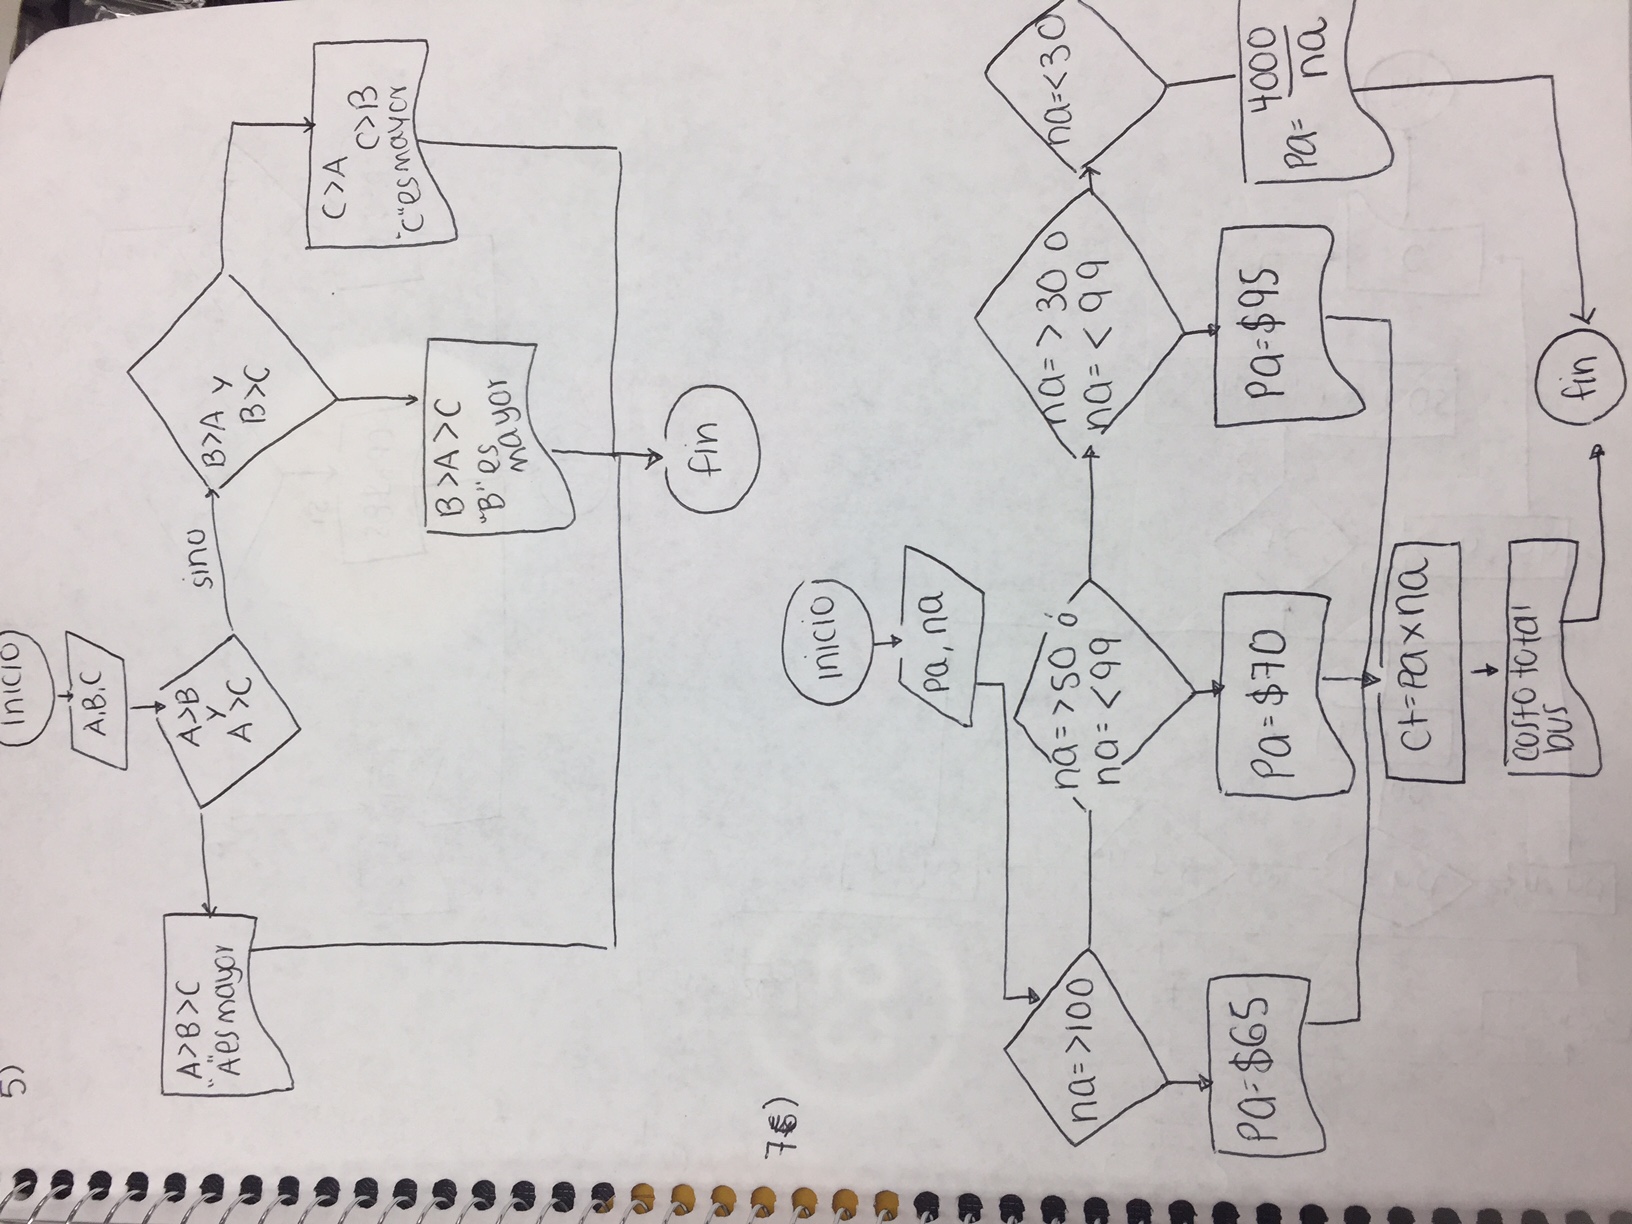 5)
inicio
A,B,C
A>B
y
A>C
sino
B>A y
B>C
A>B>C
"A"es mayor
C>A
C>B
"C"es mayor
B>A>C
"B" es
mayor
fin
7)
inicio
pa, na
na=>100
na=>50 ó
na=<99
na=>30 o
na=<99
na=<30
pa=$65
pa=$70
pa=$95
pa= 4000
na
ct=pa x na
costo total
bus
fin